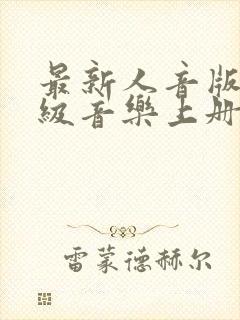 最新人音版
級音樂上册
雷蒙德赫尔